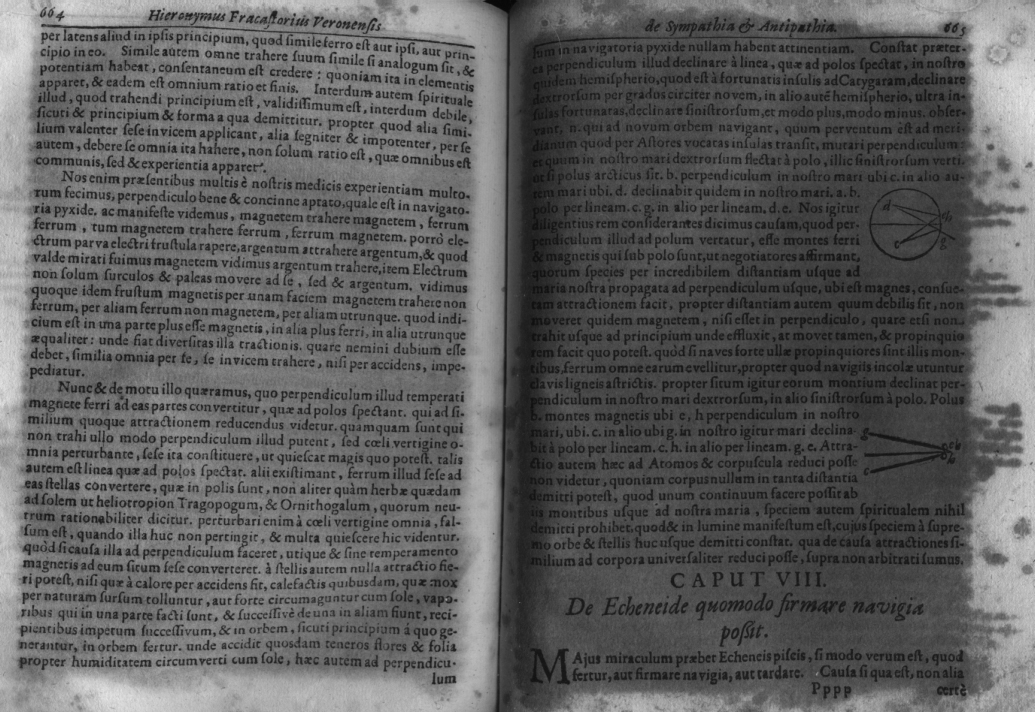 664 Hieronymus Fracastorius Veronensis
per latens aliud in ipsis principium, quod simile ferro est aut ipsi, aut prin-
cipio in eo. Simile autem omne trahere suum simile si analogum sit, &
potentiam habeat, consentaneum est credere: quoniam ita in elementis
apparet, & eadem est omnium ratio et finis. Interdum autem spirituale
illud, quod trahendi principium est, validissimum est, interdum debile,
sicuti & principium & forma a qua demittitur. propter quod alia simi-
lium valenter sese invicem applicant, alia segniter & impotenter. per se
autem, debere se omnia ita habere, non solum ratio est, quæ omnibus est
communis, sed & experientia apparet.
Nos enim præsentibus multis è nostris medicis experientiam multo-
rum fecimus, perpendiculo bene & concinne aptato, quale est in navigato-
ria pyxide. ac manifeste videmus, magnetem trahere magnetem, ferrum
ferrum, tum magnetem trahere ferrum, ferrum magnetem. porrò ele-
ctrum parva electri frustula rapere, argentum attrahere argentum, & quod
valde mirati fuimus magnetem vidimus argentum trahere, item Electrum
non solum surculos & paleas movere ad se, sed & argentum. vidimus
quoque idem frustum magnetis per unam faciem magnetem trahere non
ferrum, per aliam ferrum non magnetem, per aliam utrunque. quod indi-
cium est in una parte plus esse magnetis, in alia plus ferri, in alia utrunque
æqualiter: unde fiat diversitas illa tractionis. quare nemini dubium esse
debet, similia omnia per se, se invicem trahere, nisi per accidens, impe-
pediatur.
Nunc & de motu illo quæramus, quo perpendiculum illud temperati
magnete ferri ad eas partes convertitur, quæ ad polos spectant. qui ad si-
milium quoque attractionem reducendus videtur. quamquam sunt qui
non trahi ullo modo perpendiculum illud putent, sed cœli vertigine o-
mnia perturbante, sese ita constituere, ut quiescat magis quo potest. talis
autem est linea quæ ad polos spectat. alii existimant, ferrum illud sese ad
eas stellas convertere, quæ in polis sunt, non aliter quàm herbæ quædam
ad solem ut heliotropion Tragopogum, & Ornithogalum, quorum neu-
trum rationabiliter dicitur. perturbari enim à cœli vertigine omnia, fal-
sum est, quando illa huc non pertingit, & multa quiescere hic videntur.
quòd si causa illa ad perpendiculum faceret, utique & sine temperamento
magnetis ad eum situm sese converteret. à stellis autem nulla attractio fie-
ri potest, nisi quæ à calore per accidens fit, calefactis quibusdam, quæ mox
per naturam sursum tolluntur, aut forte circumaguntur cum sole, vapo-
ribus qui in una parte facti sunt, & successivè de una in aliam fiunt, reci-
pientibus impetum successivum, & in orbem, sicuti principium à quo ge-
nerantur, in orbem fertur. unde accidit quosdam teneros flores & folia
propter humiditatem circumverti cum sole, hæc autem ad perpendicu-
lum
de Sympathia & Antipathia. 665
sum in navigatoria pyxide nullam habent attinentiam. Constat præter-
ea perpendiculum illud declinare à linea, quæ ad polos spectat, in nostro
quidem hemispherio, quod est à fortunatis insulis ad Catygaram, declinare
dextrorsum per gradus circiter novem, in alio autē hemispherio, ultra in-
sulas fortunatas, declinare sinistrorsum, et modo plus, modo minus. obser-
vant. n. qui ad novum orbem navigant, quum perventum est ad meri-
dianum quod per Astores vocatas insulas transit, mutari perpendiculum:
et quum in nostro mari dextrorsum flectat à polo, illic sinistrorsum verti.
ut si polus arcticus sit. b. perpendiculum in nostro mari ubi c. in alio au-
tem mari ubi. d. declinabit quidem in nostro mari. a. b.
polo per lineam. c. g. in alio per lineam. d. e. Nos igitur
diligentius rem considerantes dicimus causam, quod per-
pendiculum illud ad polum vertatur, esse montes ferri
& magnetis qui sub polo sunt, ut negotiatores affirmant,
quorum species per incredibilem distantiam usque ad
maria nostra propagata ad perpendiculum usque, ubi est magnes, consue-
tam attractionem facit, propter distantiam autem quum debilis sit, non
moveret quidem magnetem, nisi esset in perpendiculo, quare etsi non
trahit usque ad principium unde effluxit, at movet tamen, & propinquio-
rem facit quo potest. quòd si naves forte ullæ propinquiores sint illis mon-
tibus, ferrum omne earum evellitur, propter quod navigiis incolæ utuntur
clavis ligneis astrictis. propter situm igitur eorum montium declinat per-
pendiculum in nostro mari dextrorsum, in alio sinistrorsum à polo. Polus
b. montes magnetis ubi e, h perpendiculum in nostro
mari, ubi. c. in alio ubi g. in nostro igitur mari declina-
bit à polo per lineam. c. h. in alio per lineam. g. e. Attra-
ctio autem hæc ad Atomos & corpuscula reduci posse
non videtur, quoniam corpus nullum in tanta distantia
demitti potest, quod unum continuum facere possit ab
iis montibus usque ad nostra maria, speciem autem spiritualem nihil
demitti prohibet, quod & in lumine manifestum est, cujus speciem à supre-
mo orbe & stellis huc usque demitti constat. qua de causa attractiones si-
milium ad corpora universaliter reduci posse, supra non arbitrati sumus.
CAPUT VIII.
De Echeneide quomodo firmare navigia
possit.
MAjus miraculum præbet Echeneis piscis, si modo verum est, quod
fertur, aut firmare navigia, aut tardare. Causa si qua est, non alia
Pppp certè